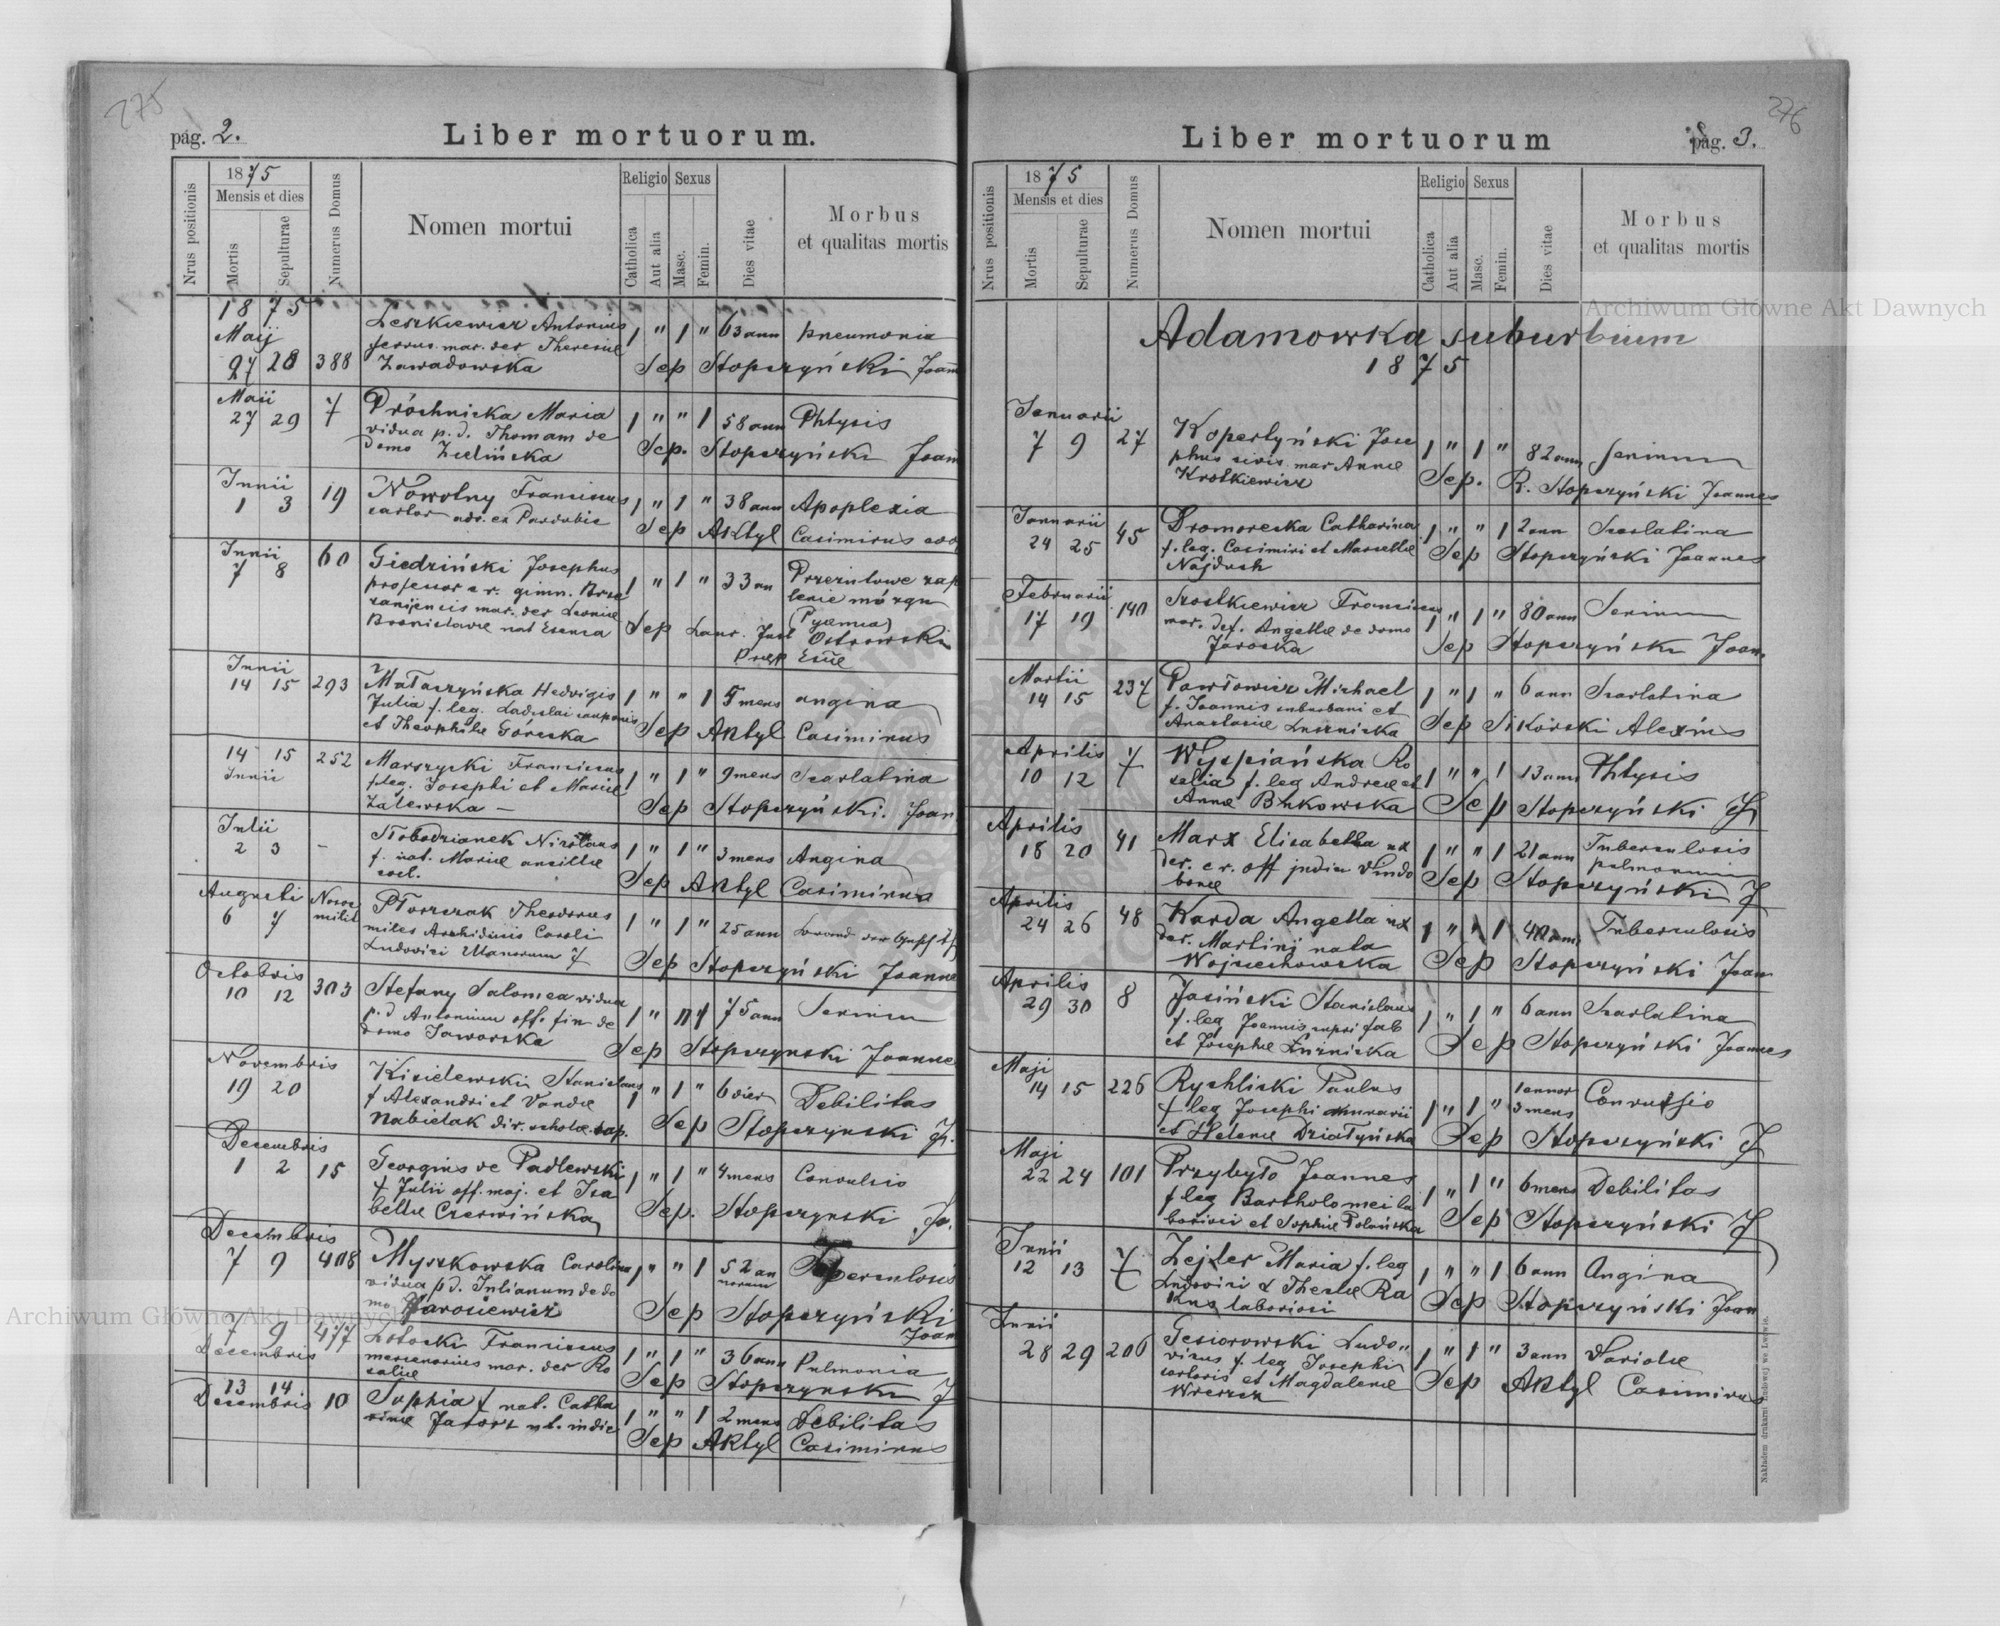 275
pag. 2.
Liber mortuorum.
Nrus positionis
1875
Mensis et dies
Mortis
Sepulturae
Numerus Domus
Nomen mortui
Religio
Catholica
Aut alia
Sexus
Masc.
Femin.
Dies vitae
Morbus
et qualitas mortis
1875
Maij
27 28 388
Leszkiewicz Antonius
mar. der Theresiæ
Zawadowska
1 " 1 " 63 ann pneumonia
Sep Stopczyński Joann
Maii
27 29 7
Próchnicka Maria
vidua p. d. Thomam de
domo Zielińska
1 " " 1 58 ann Phtysis
Sep. Stopczyński Joann
Junii
1 3 19
Nowotny Franciscus
sartor adv. ex Pardubic
1 " 1 " 38 ann Apoplexia
Sep Aktyl Casimirus coo
Junii
7 8 60
Giedziński Josephus
professor c. r. gimn. Brze
zanijencis mar. der Leoniæ
Bronislavæ nat
1 " 1 " 33 an Przerzutowe zap
lenie mózgu
(Pyæmia)
Sep Laur. Just Ostrowski
Junii
14 15 293
Mataczyńska Hedvigis
Julia f. leg. Ladislai cauponis
et Theophilæ Górecka
1 " " 1 5 mens angina
Sep Aktyl Casimirus
14 15 252
Junii
Marszycki Franciscus
f. leg. Josephi et Mariæ
Zalewska –
1 " 1 " 9 mens Scarlatina
Sep Stopczyński. Joan
Julii
2 3 –
Słobodzianek Nicolaus
f. nat. Mariæ ancillæ
cael.
1 " 1 " 3 mens Angina
Sep Aktyl Casimirus
Augusti
6 7
Theodorus
miles Archiducis Caroli
Ludovici Ulanorum 7
1 " 1 " 25 ann
Sep Stopczyński Joannes
Octobris
10 12 303
Stefany Salomea vidua
p. d Antonium off. fin de
domo Jaworska
1 " " 1 75 ann Senium
Sep Stopczynski Joannes
Novembris
19 20
Kisielewski Stanislaus
f Alexandri et Vandæ
Nabielak dir. scholæ cap.
1 " 1 " 6 dier Debilitas
Sep Stopczynski J.
Decembris
1 2 15
Georgius de Padlewski
f Julii off. maj. et Isa
bellæ Czerwińska
1 " 1 " 4 mens Convulsio
Sep. Stopczynski Jo.
Decembris
7 9 408
Myszkowska Carolina
vidua p d. Julianum de do
mo Jarosiewicz
1 " " 1 52 an
norum
Sep Stopczyński
Joan
7 9 477
Decembris
Franciscus
mercenarius mar. der Ro
saliæ
1 " 1 " 36 ann Pulmonia
Sep Stopczynski J
13 14
Decembris 10
Sophia f nat. Catha
rinæ
1 " " 1 2 mens Debilitas
Sep Aktyl Casimirus
276
Liber mortuorum
pag. 3.
Nrus positionis
1875
Mensis et dies
Mortis
Sepulturae
Numerus Domus
Nomen mortui
Religio
Catholica
Aut alia
Sexus
Masc.
Femin.
Dies vitae
Morbus
et qualitas mortis
Adamowka suburbium
1875
Januarii
7 9 27
Kopertyński Jose
phus civis mar Annæ
Krotkiewicz
1 " 1 " 82 ann Senium
Sep. R. Stopczyński Joannes
Januarii
24 25 45
Dromorecka Catharina
f. leg. Casimiri et Marcellæ
Najduch
1 " " 1 2 ann Scarlatina
Sep Stopczyński Joannes
Februarii
17 19 140
Szostkiewicz Franciscus
mar. def. Angellæ de domo
Jarocka
1 " 1 " 80 ann Senium
Sep Stopczyński Joan.
Martii
14 15 237
Pawłowicz Michael
f. Joannis suburbani et
Anastasiæ Łuznicka
1 " 1 " 6 ann Scarlatina
Sep Sikorski Alexius
Aprilis
10 12 7
Wyspiańska Ro
salia f. leg Andreæ et
Annæ Bukowska
1 " " 1 13 ann Phtysis
Sep Stopczyński J
Aprilis
18 20 41
Marx Elisabetha ux
der. c r. off judic Vindo
bonæ
1 " " 1 21 ann Tuberculosis
pulmonum
Sep Stopczyński J
Aprilis
24 26 48
Karda Angella ux
der. Martinj nata
Wojciechowska
1 " " 1 40 ann Tuberculosis
Sep Stopczyński Joan
Aprilis
29 30 8
Jasiński Stanislaus
f. leg Joannis cupri fab
et Josephæ Łuznicka
1 " 1 " 6 ann Scarlatina
Sep Stopczyński Joannes
Maji
14 15 226
Rychlicki Paulus
f leg Josephi
et Helenæ Działyńska
1 " 1 " 1 annor
3 mens Convulsio
Sep Stopczyński J
Maji
22 24 101
Przybyło Joannes
f leg Bartholomei la
boriosi et Sophiæ Polańska
1 " 1 " 6 mens Debilitas
Sep Stopczyński J
Junii
12 13 7
Zejzler Maria f. leg
Ludovici & Theclæ Ra
kus laboriosi
1 " " 1 6 ann Angina
Sep Stopczyński Joan
Junii
28 29 206
Gesiorowski Ludo"
vicus f. leg Josephi
sartoris et Magdalenæ
1 " 1 " 3 ann Variolæ
Sep Aktyl Casimirus
Nakładem drukarni Ludowej we Lwowie.
Archiwum Główne Akt Dawnych
Archiwum Główne Akt Dawnych